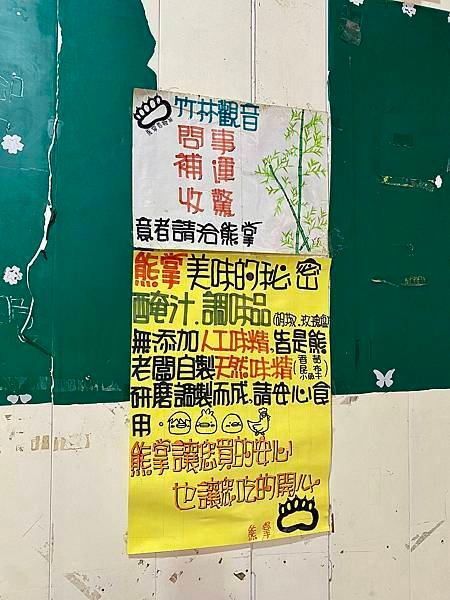 竹林觀音
問事
補運
收驚
意者請洽熊掌
熊掌美味的秘密
醃汁.調味品(胡椒.玫瑰鹽)
無添加人工味精,皆是熊
老闆自製天然味精
研磨調製而成,請安心食
用。
熊掌讓您買的安心
也讓您吃的開心
熊掌